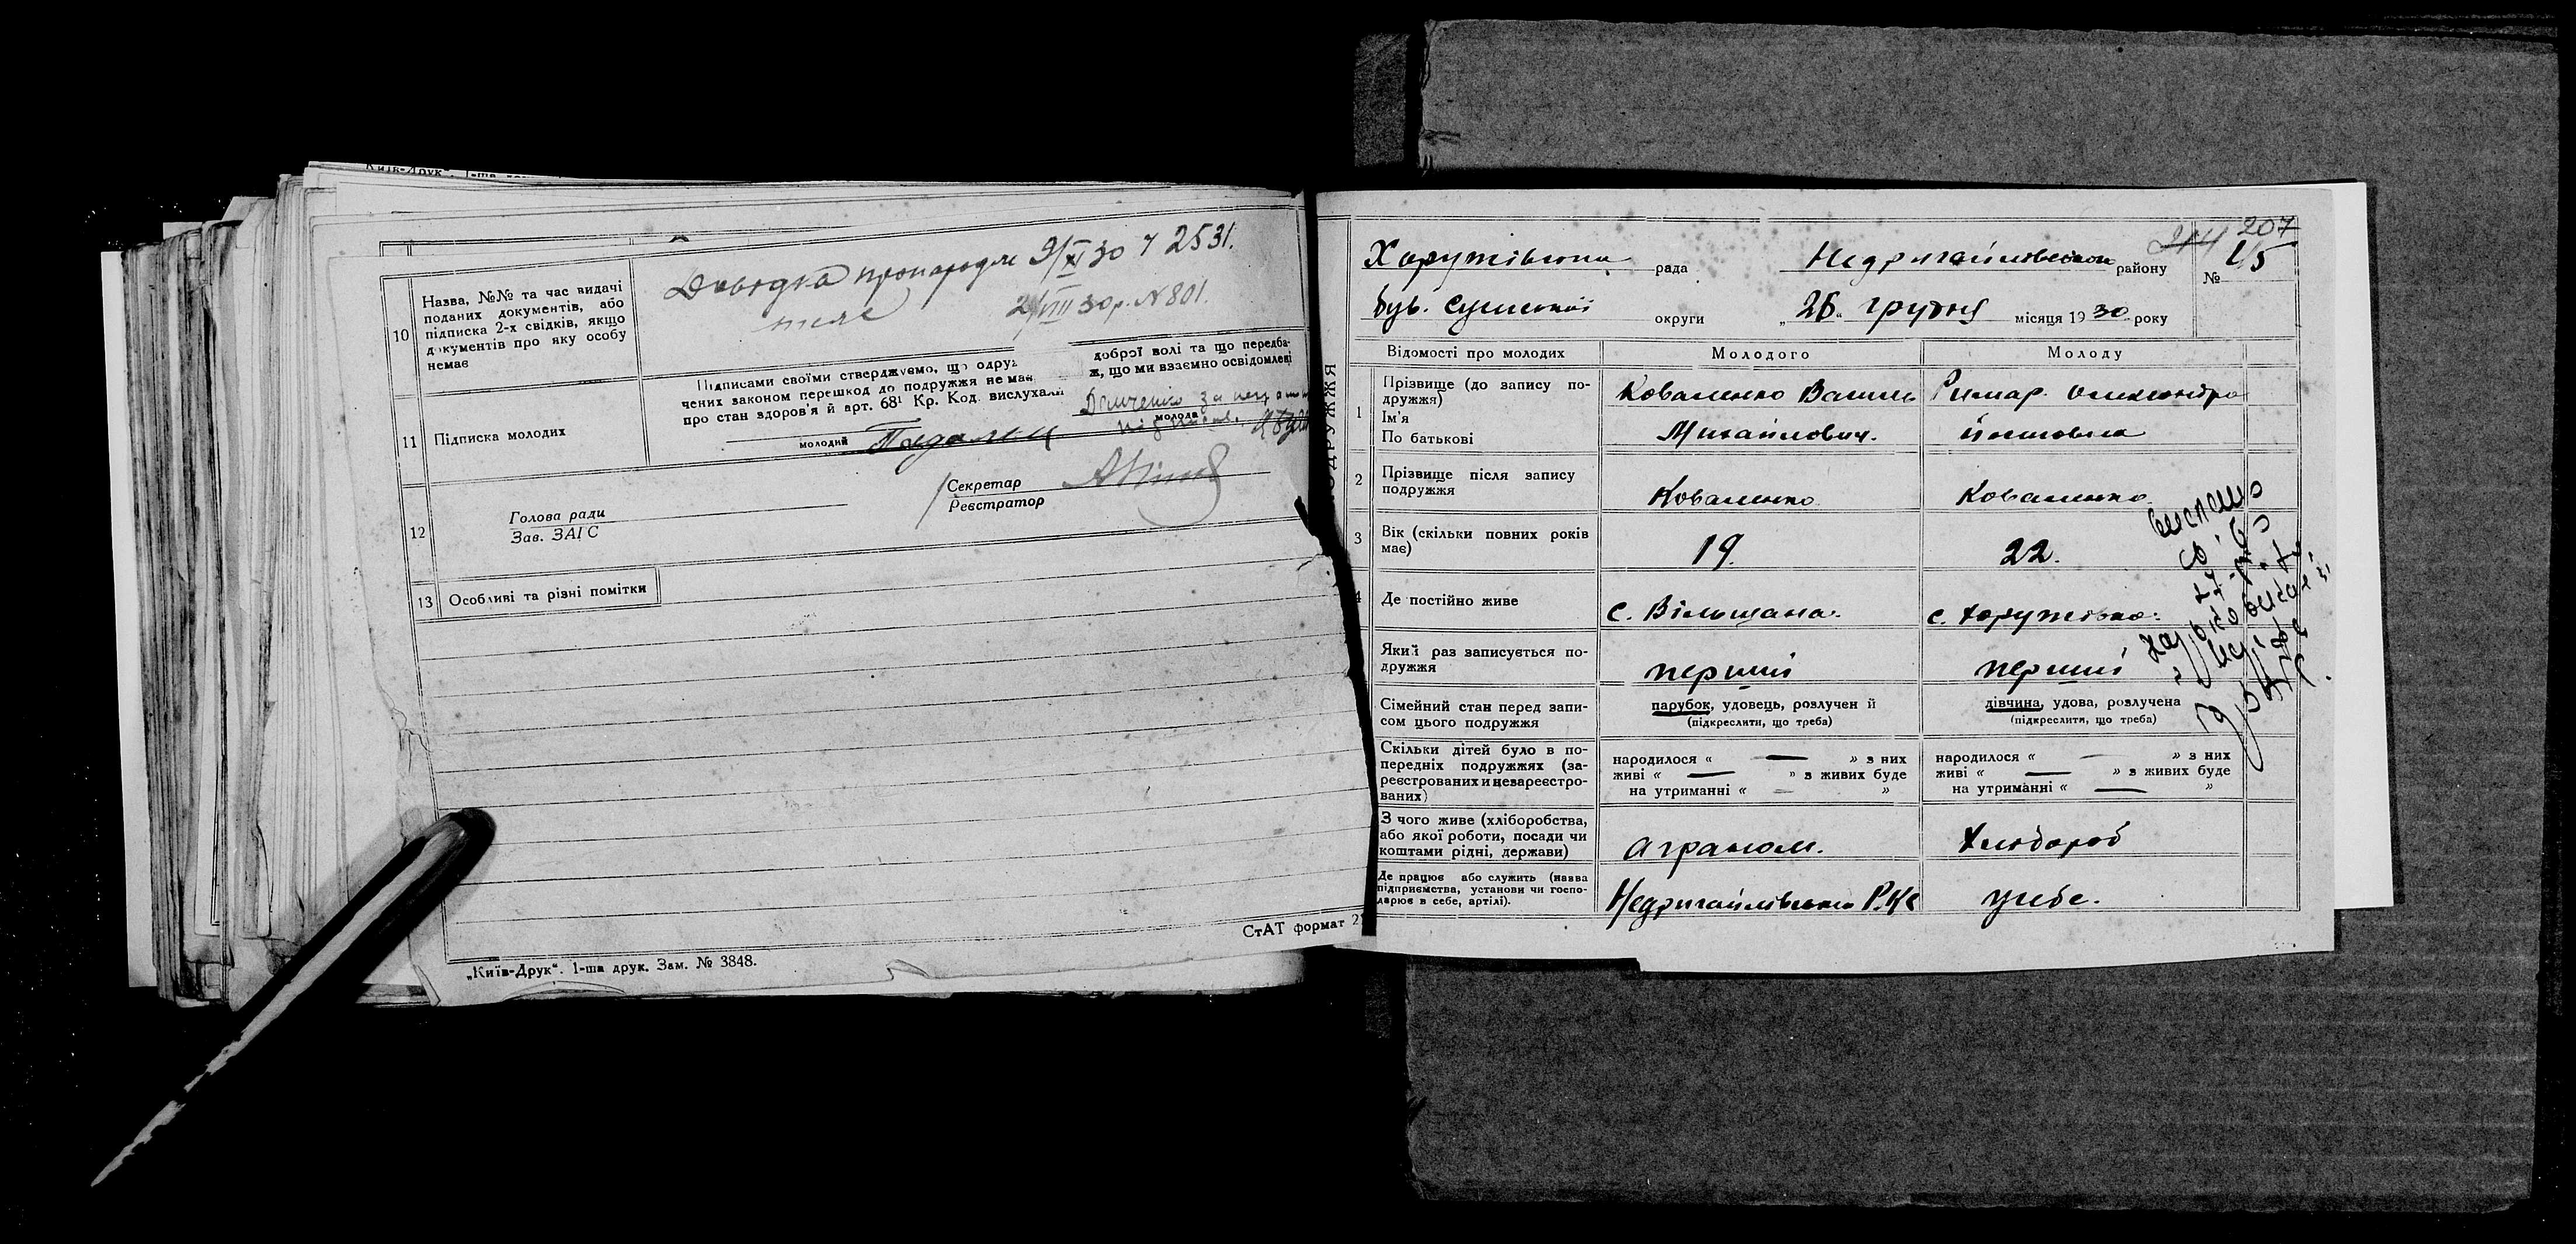 Київ-Друк". 1-ша
10
Назва, №№ та час видачі
поданих документів, або
підписка 2-х свідків, якщо
документів про яку особу
немає
Довідка 9/XI 30 2531.
2/VIII 30 р. N 801.
11
Підписка молодих
Підписами своїми стверджуємо, що одруж
доброї волі та що передба-
чених законом перешкод до подружжя немає
ж, що ми взаємно освідомлені
про стан здоров'я й арт. 68¹ Кр. Код. вислухали
Данченко за
молодий
молода
12
Голова ради
Зав. ЗАГС
Секретар
Реєстратор
13
Особливі та різні помітки
СтАТ формат 2
„Київ-Друк“. 1-ша друк. Зам. № 3848.
ОДРУЖЖЯ
207
214
Хоружівська рада Недригайлівського району № 15
був. Сумської округи „26“ грудня місяця 1930 року
Відомості про молодих
Молодого
Молоду
1
Прізвище (до запису по-
дружжя)
Ім'я
По батькові
Коваленко Василь
Михайлович.
Римар. Олександра
Йосиповна
2
Прізвище після запису
подружжя
Коваленко
Коваленко
3
Вік (скільки повних років
має)
19.
22.
4
Де постійно живе
с. Вільшана.
с. Хоружівка.
Який раз записується по-
дружжя
перший
перший
Сімейний стан перед запи-
сом цього подружжя
парубок, удовець, розлучений
(підкреслити, що треба)
дівчина, удова, розлучена
(підкреслити, що треба)
Скільки дітей було в по-
передніх подружжях (за-
реєстрованих и незареєстро-
ваних)
народилося « — » з них
живі « — » з живих буде
на утриманні « — »
народилося « — » з них
живі « — » з живих буде
на утриманні « — »
З чого живе (хліборобства,
або якої роботи, посади чи
коштами рідні, держави)
аграном.
Хлібороб
Де працює або служить (назва
підприємства, установи чи госпо-
дарює в себе, артілі).
Недригайлівська
у себе.